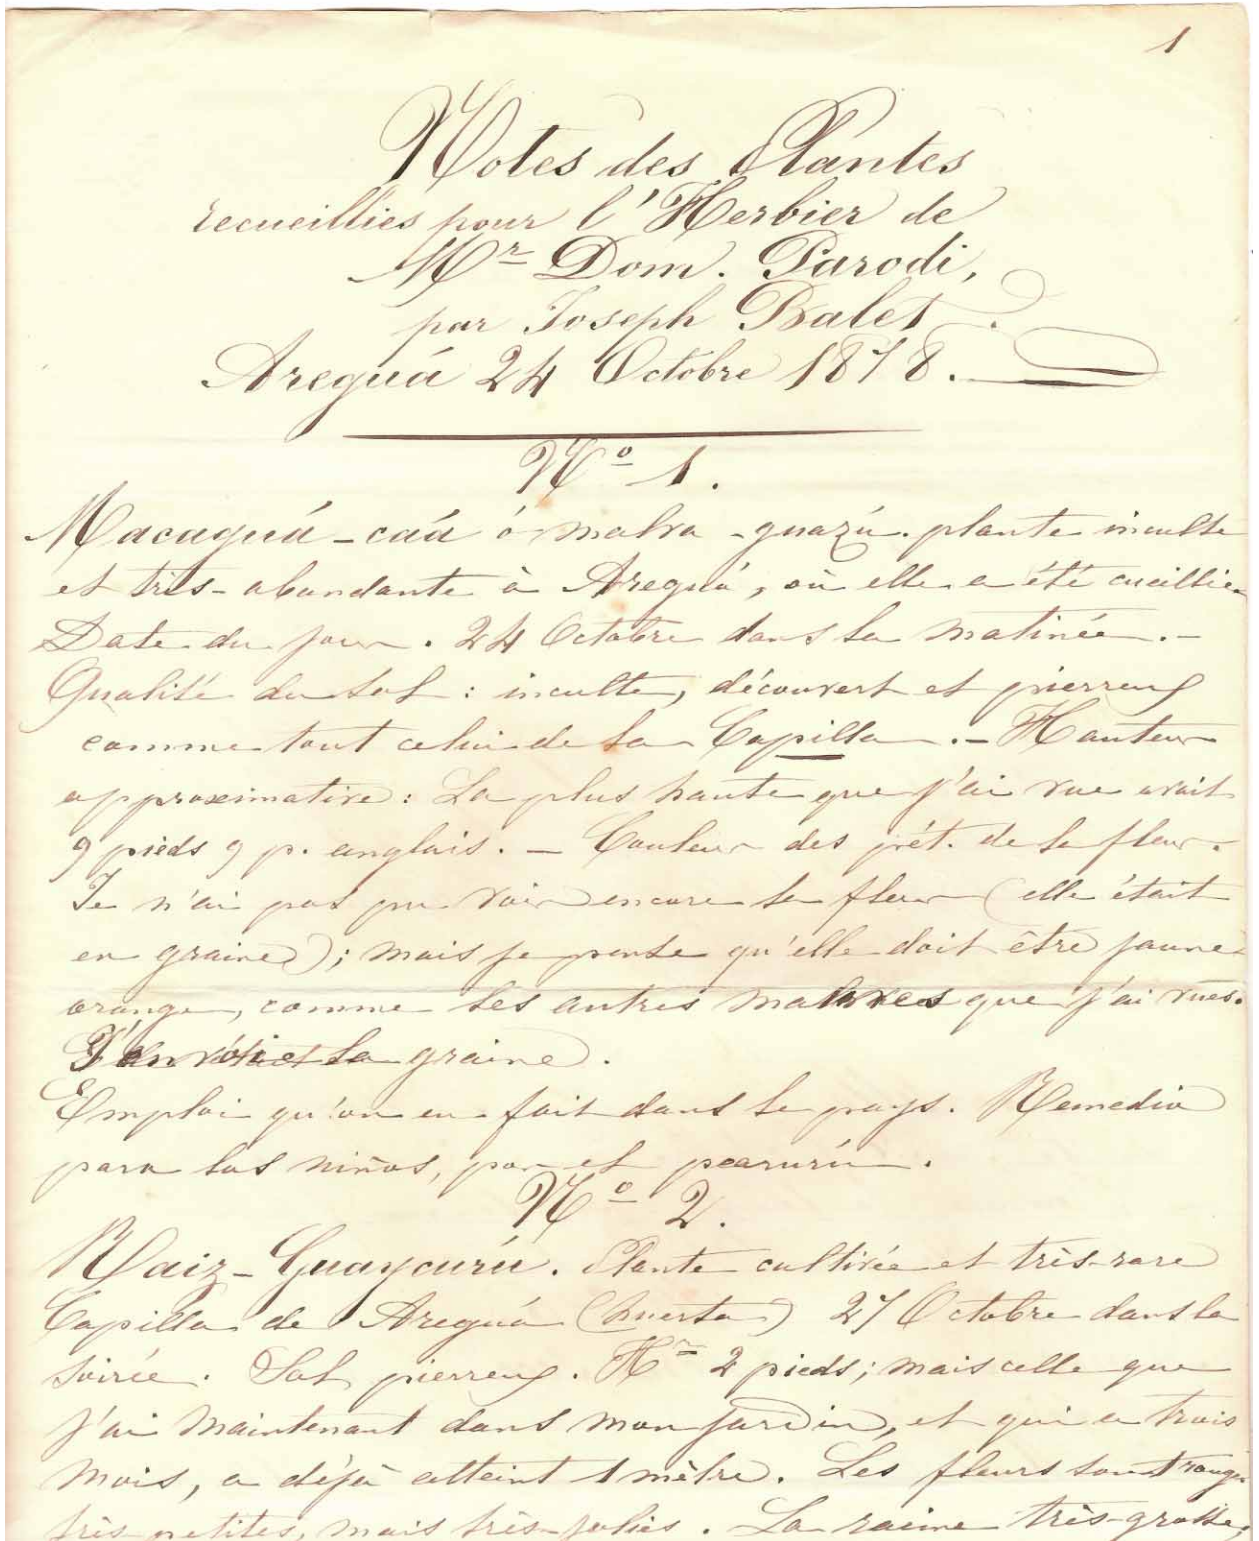 1
Notes des Plantes
recueillies pour l'Herbier de
Mr Dom. Parodi,
par Joseph Balet.
Areguá 24 Octobre 1878.
No 1.
Macaguá-caá ó malva-guazú. plante inculte
et très-abondante à Areguá, où elle a été cueillie.
Date du jour. 24 Octobre dans la matinée.-
Qualité du sol: inculte, découvert et pierreux
comme tout celui de la Capilla.- Hauteur
approximative: La plus haute que j'ai vue avait
9 pieds 9 p. anglais. - Couleur des pét. de la fleur.
Je n'ai pas pu voir encore la fleur (elle était
en graine); mais je pense qu'elle doit être jaune
orange, comme les autres malves que j'ai vues.
la graine.
Emploi qu'on en fait dans le pays. Remedio
para los niños, por el pearurú.
No 2.
Raiz-Guaycurú. Plante cultivée et très-rare
Capilla de Areguá (huerta) 27 Octobre dans la
soirée. Sol pierreux. Hr 2 pieds; mais celle que
j'ai maintenant dans mon jardin, et qui a trois
mois, a déjà atteint 1 mètre. Les fleurs sont rouges
très petites, mais très-jolies. La racine très-grosse,